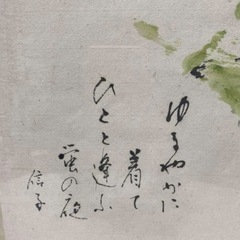 ゆるやかに
着て
ひとと逢ふ
蛍の夜
信子